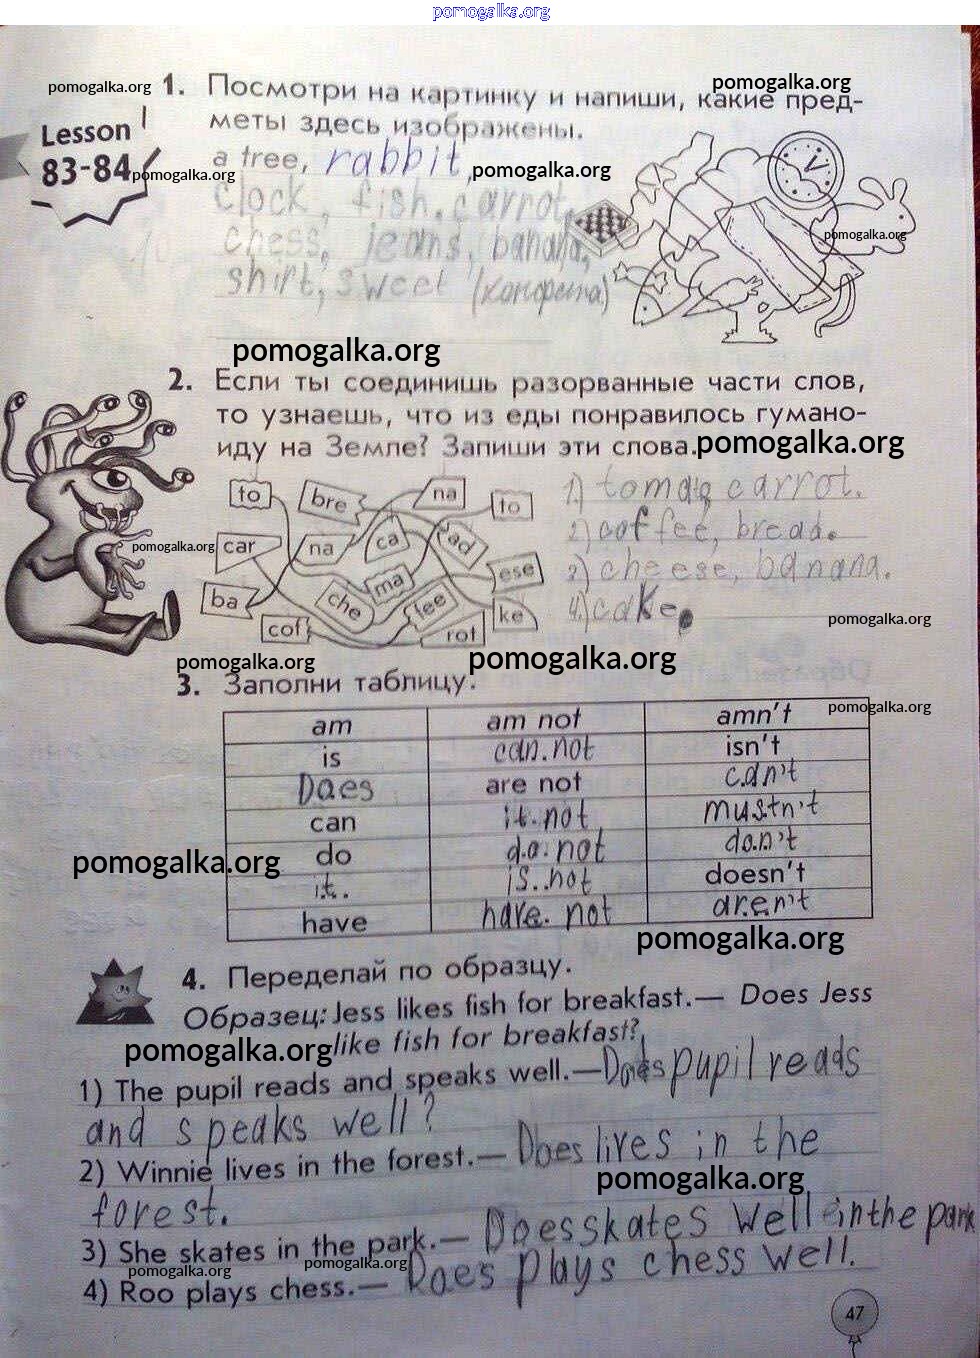 pomogalka.org
pomogalka.org 1. Посмотри на картинку и напиши, какие пред- pomogalka.org
Lesson меты здесь изображены.
83-84 pomogalka.org a tree, rabbit, pomogalka.org
clock, fish, carrot,
chess, jeans, banana, pomogalka.org
shirt, sweet (конфета)
pomogalka.org
2. Если ты соединишь разорванные части слов,
то узнаешь, что из еды понравилось гумано-
иду на Земле? Запиши эти слова. pomogalka.org
to bre na to 1) tomato carrot.
pomogalka.org car na ca ad 2) coffee, bread.
ba che ma fee ese 3) cheese, banana.
cof rot ke 4) cake.
pomogalka.org
pomogalka.org pomogalka.org
3. Заполни таблицу.
am am not amn't pomogalka.org
is can not isn't
Does are not can't
can it not mustn't
do do not don't
pomogalka.org
it. is not doesn't
have have not aren't
pomogalka.org
4. Переделай по образцу.
Образец: Jess likes fish for breakfast.— Does Jess
pomogalka.org like fish for breakfast?
1) The pupil reads and speaks well.— Does pupil reads
and speaks well?
2) Winnie lives in the forest.— Does lives in the
pomogalka.org
forest.
3) She skates in the park.— Does skates well in the park
pomogalka.org pomogalka.org
4) Roo plays chess.— Does plays chess well.
47